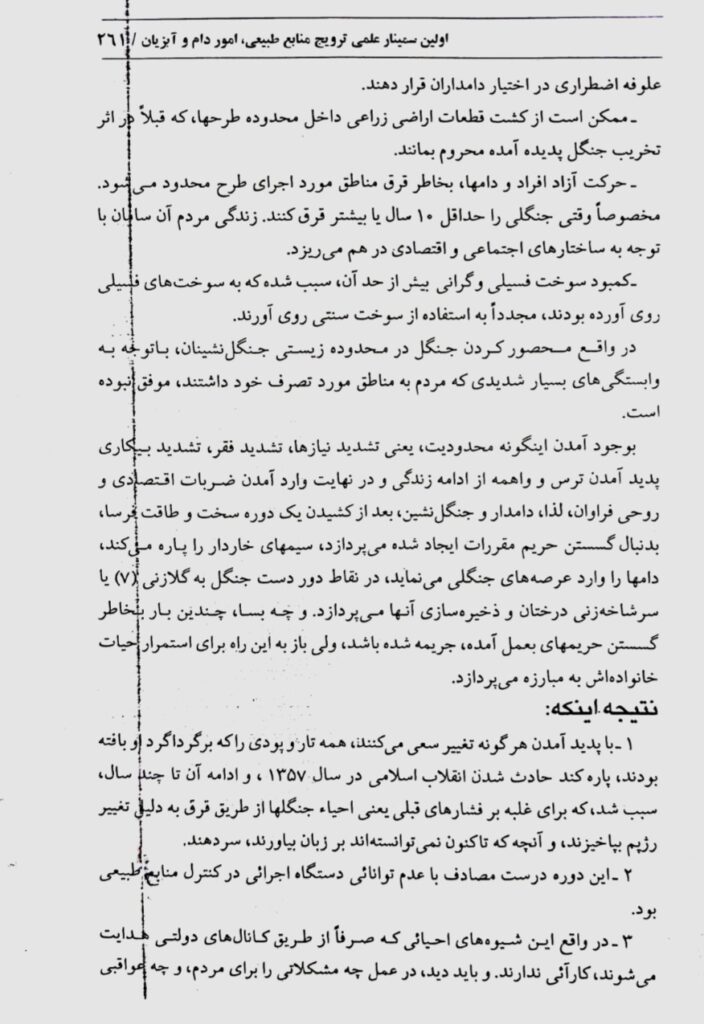 اولین سمینار علمی ترویج منابع طبیعی، امور دام و آبزیان / ۲۶۱
علوفه اضطراری در اختیار دامداران قرار دهند.
ـ ممکن است از کشت قطعات اراضی زراعی داخل محدوده طرحها، که قبلاً در اثر
تخریب جنگل پدیده آمده محروم بمانند.
ـ حرکت آزاد افراد و دامها، بخاطر قرق مناطق مورد اجرای طرح محدود می‌شود.
مخصوصاً وقتی جنگلی را حداقل ۱۰ سال یا بیشتر قرق کنند. زندگی مردم آن سامان با
توجه به ساختارهای اجتماعی و اقتصادی در هم می‌ریزد.
ـ کمبود سوخت فسیلی و گرانی بیش از حد آن، سبب شده که به سوخت‌های فسیلی
روی آورده بودند، مجدداً به استفاده از سوخت سنتی روی آورند.
در واقع محصور کردن جنگل در محدوده زیستی جنگل‌نشینان، باتوجه به
وابستگی‌های بسیار شدیدی که مردم به مناطق مورد تصرف خود داشتند، موفق نبوده
است.
بوجود آمدن اینگونه محدودیت، یعنی تشدید نیازها، تشدید فقر، تشدید بیکاری
پدید آمدن ترس و واهمه از ادامه زندگی و در نهایت وارد آمدن ضربات اقتصادی و
روحی فراوان، لذا، دامدار و جنگل‌نشین، بعد از کشیدن یک دوره سخت و طاقت فرسا،
بدنبال گسستن حریم مقررات ایجاد شده می‌پردازد، سیمهای خاردار را پاره می‌کند،
دامها را وارد عرصه‌های جنگلی می‌نماید، در نقاط دور دست جنگل به گلازنی (۷) یا
سرشاخه‌زنی درختان و ذخیره‌سازی آنها می‌پردازد. و چه بسا، چندین بار بخاطر
گسستن حریمهای بعمل آمده، جریمه شده باشد، ولی باز به این راه برای استمرار حیات
خانواده‌اش به مبارزه می‌پردازد.
نتیجه اینکه:
۱ ـ با پدید آمدن هر گونه تغییر سعی می‌کنند، همه تار و پودی را که بر گرداگرد او بافته
بودند، پاره کند حادث شدن انقلاب اسلامی در سال ۱۳۵۷ ، و ادامه آن تا چند سال،
سبب شد، که برای غلبه بر فشارهای قبلی یعنی احیاء جنگلها از طریق قرق به دلیل تغییر
رژیم بپاخیزند، و آنچه که تاکنون نمی‌توانسته‌اند بر زبان بیاورند، سردهند.
۲ ـ این دوره درست مصادف با عدم توانائی دستگاه اجرائی در کنترل منابع طبیعی
بود.
۳ ـ در واقع این شیوه‌های احیائی که صرفاً از طریق کانال‌های دولتی هدایت
می‌شوند، کارآئی ندارند. و باید دید، در عمل چه مشکلاتی را برای مردم، و چه عواقبی